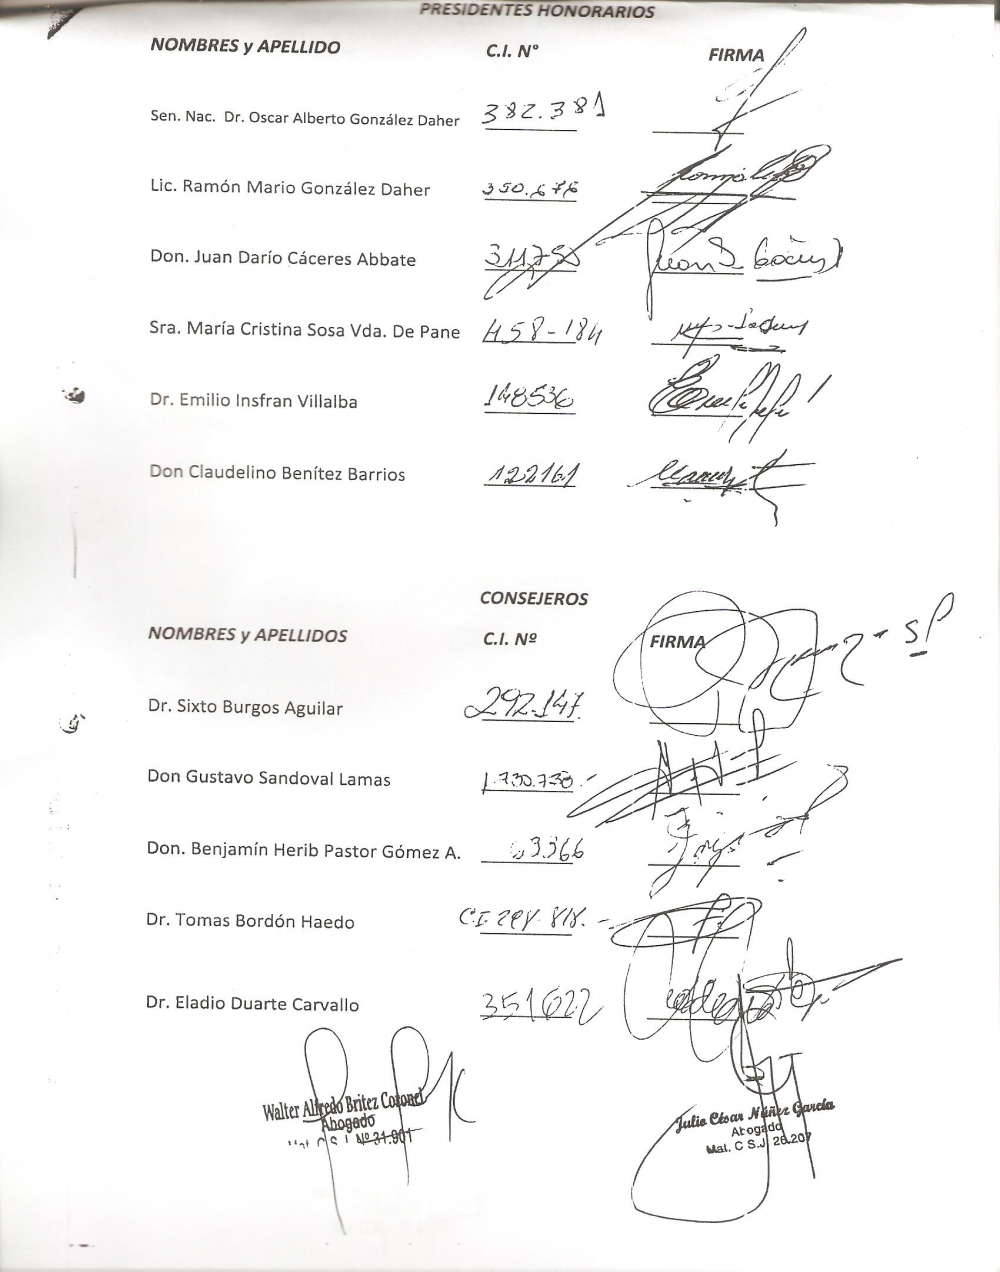 PRESIDENTES HONORARIOS
NOMBRES y APELLIDO C.I. N° FIRMA
Sen. Nac. Dr. Oscar Alberto González Daher 382.381
Lic. Ramón Mario González Daher 350.676
Don. Juan Darío Cáceres Abbate 311750
Sra. María Cristina Sosa Vda. De Pane 458-184
Dr. Emilio Insfran Villalba 148536
Don Claudelino Benítez Barrios 122161
CONSEJEROS
NOMBRES y APELLIDOS C.I. Nº FIRMA
Dr. Sixto Burgos Aguilar 292.147
Don Gustavo Sandoval Lamas 1.730.738-
Don. Benjamín Herib Pastor Gómez A.
Dr. Tomas Bordón Haedo C.I.
Dr. Eladio Duarte Carvallo 351022
Walter Alfredo Britez Coronel
Abogado
Mat. C.S.J. Nº 31.901
Julio César Núñez García
Abogado
Mat. C.S.J. 26.207